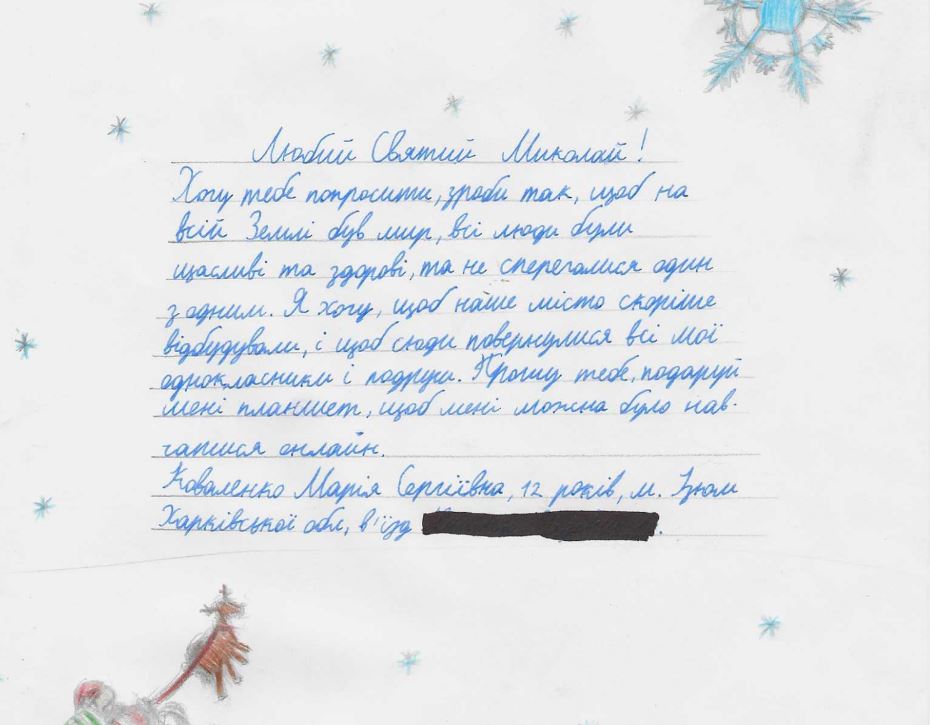 Любий Святий Миколай!
Хочу тебе попросити, зроби так, щоб на
всій Землі був мир, всі люди були
щасливі та здорові, та не сперечалися один
з одним. Я хочу, щоб наше місто скоріше
відбудували, і щоб сюди повернулися всі мої
однокласники і подруги. Прошу тебе, подаруй
мені планшет, щоб мені можна було нав-
чатися онлайн.
Коваленко Марія Сергіївна, 12 років, м. Ізюм
Харківської обл, в'їзд